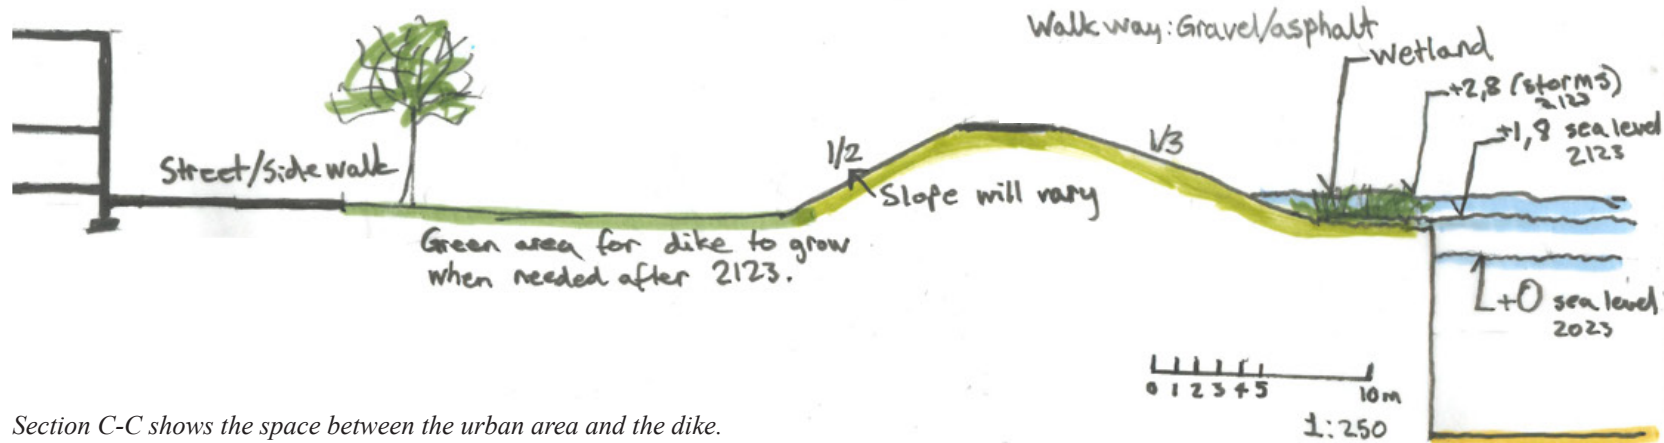 Walkway: Gravel/asphalt
Wetland
+2,8 (storms)
2123
+1,8 sea level
2123
1/2
1/3
Street/Sidewalk
Slope will vary
Green area for dike to grow
when needed after 2123.
+0 sea level
2023
0 1 2 3 4 5 10m
1:250
Section C-C shows the space between the urban area and the dike.